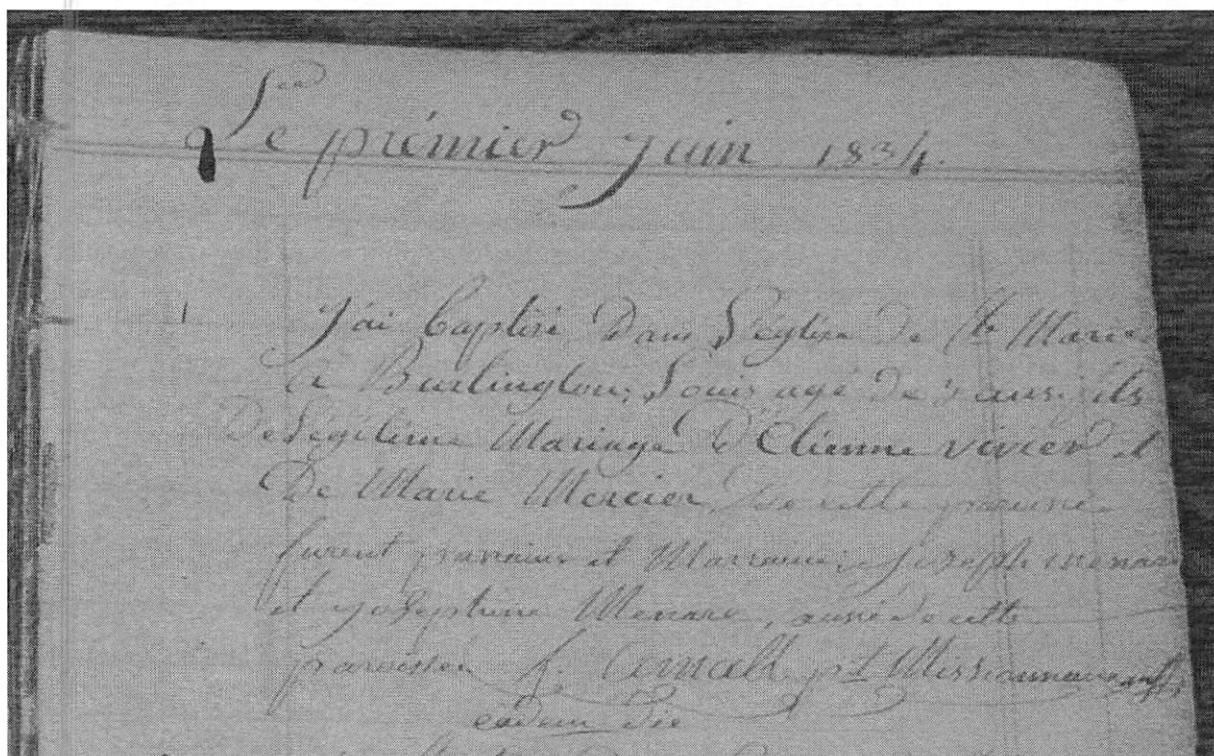 Le prémier Juin 1834.
1 J'ai baptisé Dans L'église De Ste Marie
a Burlington, Louis agé de 3 ans, fils
De Légitime Mariage D'Etienne Vivier et
De Marie Mercier, De cette paroisse
furent parrains et Marraine; Joseph menard
et Josephine Menard, aussi De cette
paroisse pt Missionnaire
eadem Die